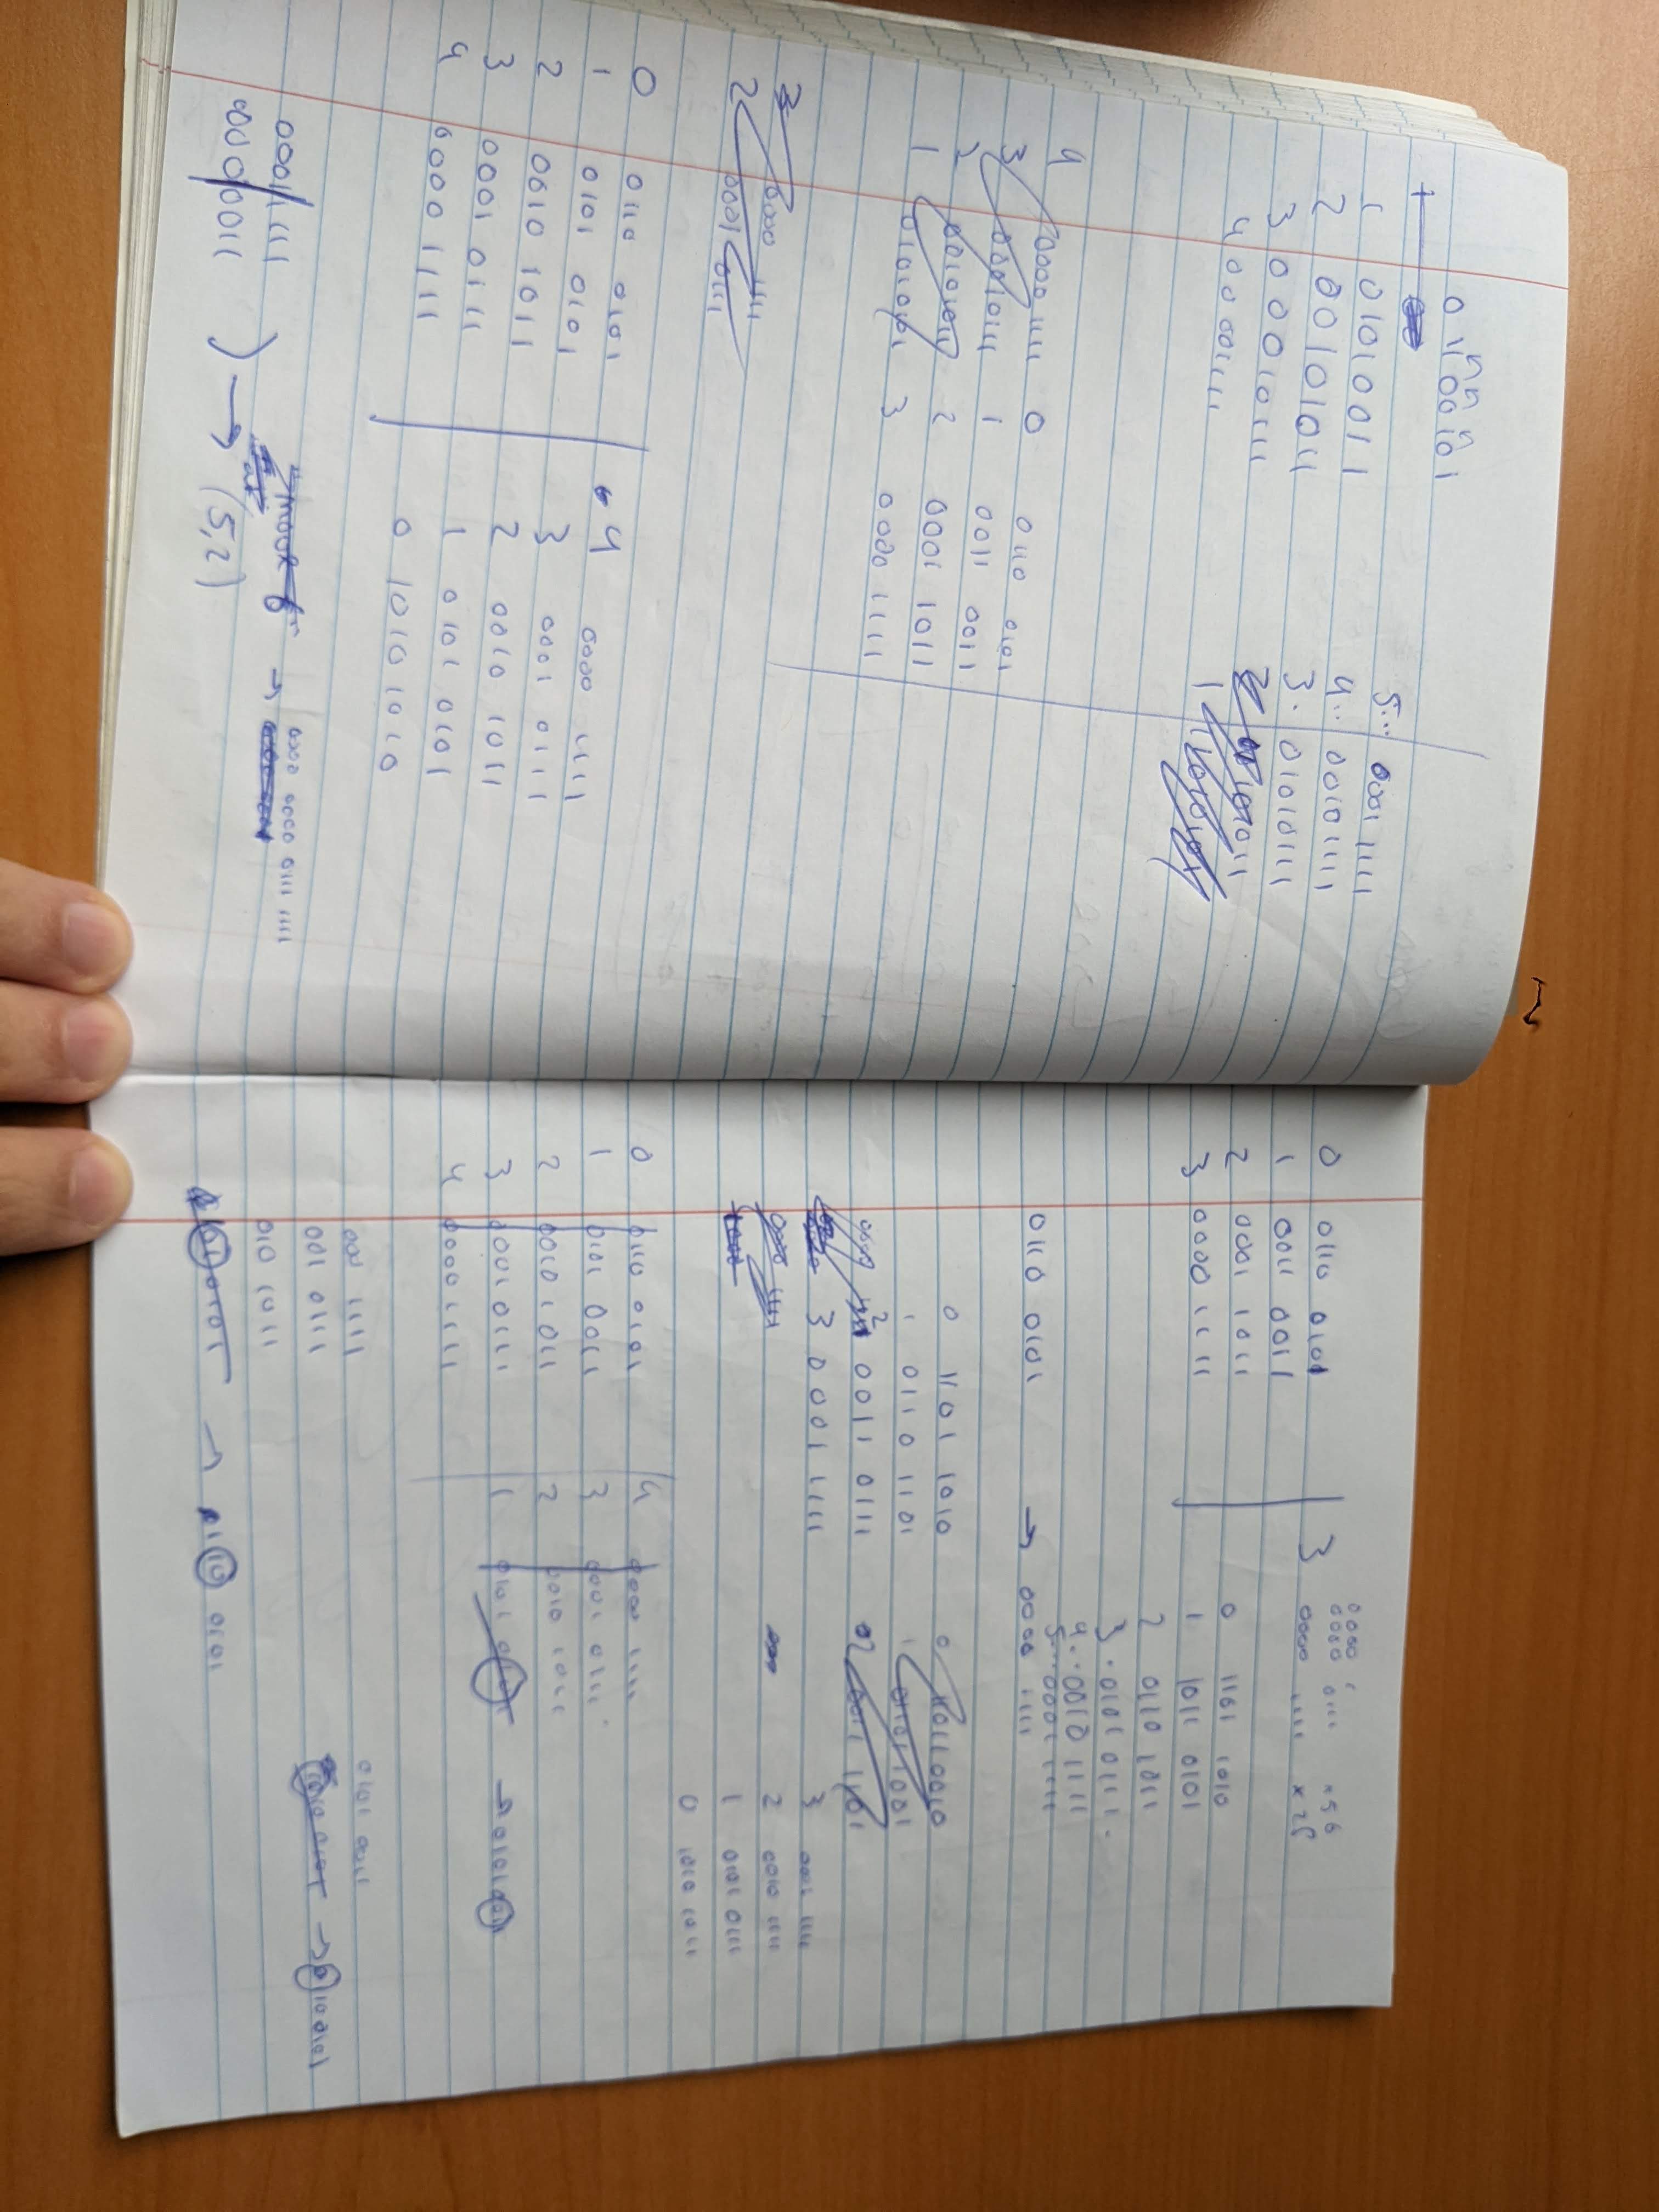 0 1100101
1
1 01010011
2 00101011
3 00010111
4 0000 1111
5.. 0001 1111
4.. 00101111
3. 01010111
4 00001111 0 0110 0101
3 00010111 1 0011 0011
2 00101011 2 0001 1011
1 3 0000 1111
2 0001 0111
0 0110 0101
1 0101 0101
2 0010 1011
3 0001 0111
4 0000 1111
4 0000 1111
3 0001 0111
2 0010 1011
1 0101 0101
0 1010 1010
0001 111
→ 0000 0000 0111 1111
→ (5,2)
0 0110 0101
1 0011 0011
2 0001 1011
3 0000 1111
3 0000 1111 x 28
0000 0000 0111 x 56
0 1101 1010
1 1011 0101
2 0110 1011
3. 0101 0111.
4.. 0010 1111
5... 0001 1111
0110 0101 → 0000 1111
0 1101 1010
1 0110 1101
2 0011 0111
3 0001 1111
0 11011 0010
3 0001 1111
2 0010 1111
1 0101 0111
0 1010 1011
0 0110 0101
1 0101 0011
2 0010 1011
3 0001 0111
4 0000 1111
4 0000 1111
3 0001 0111
2 0010 1011
1 0101 → 0101
000 1111
001 0111
010 1011
0101 0011
→ 0110 0101
→ 0101